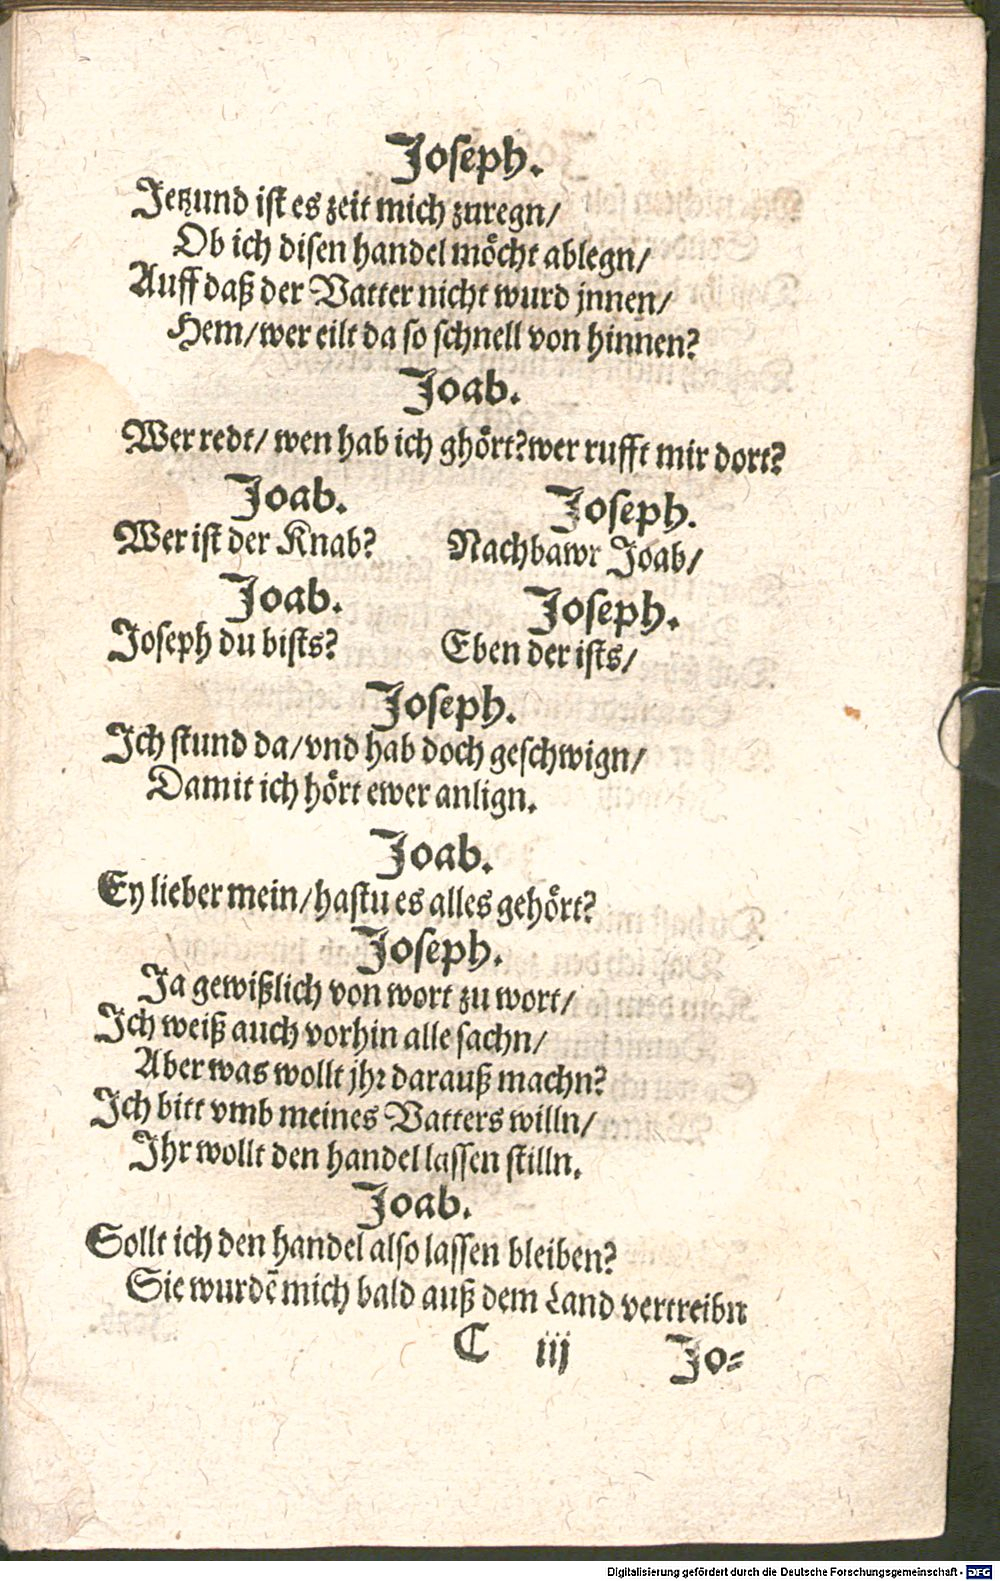 Joseph.
Jetzund ist es zeit mich zuregn/
Ob ich disen handel möcht ablegn/
Auff daß der Vatter nicht wurd jnnen/
Hem/ wer eilt da so schnell von hinnen?
Joab.
Wer redt/ wen hab ich ghört? wer rufft mir dort?
Joab. Joseph.
Wer ist der Knab? Nachbawr Joab/
Joab. Joseph.
Joseph du bists? Eben der ists/
Joseph.
Ich stund da/ vnd hab doch geschwign/
Damit ich hört ewer anlign.
Joab.
Ey lieber mein/ hastu es alles gehört?
Joseph.
Ja gewißlich von wort zu wort/
Ich weiß auch vorhin alle sachn/
Aber was wollt jhr darauß machn?
Ich bitt vmb meines Vatters willn/
Ihr wollt den handel lassen stilln.
Joab.
Sollt ich den handel also lassen bleiben?
Sie wurdẽ mich bald auß dem Land vertreibn
C iij Jo=
Digitalisierung gefördert durch die Deutsche Forschungsgemeinschaft - DFG